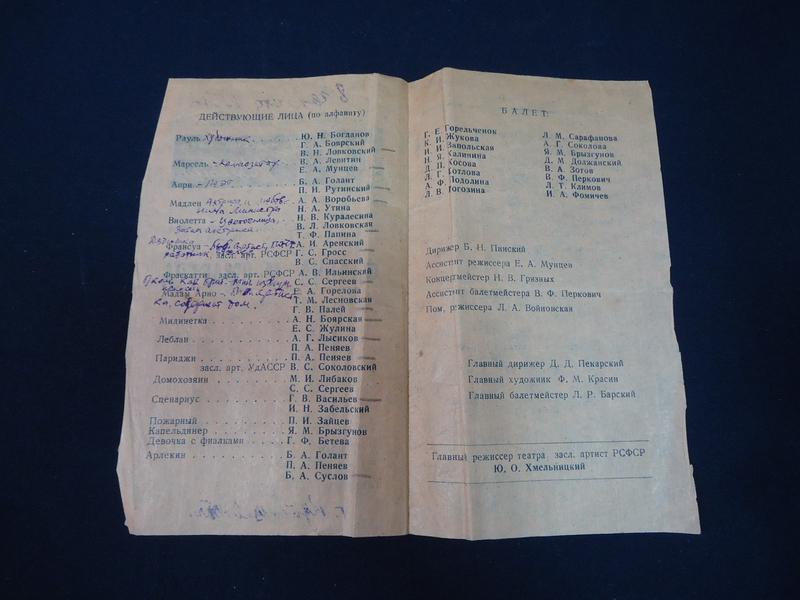 ДЕЙСТВУЮЩИЕ ЛИЦА (по алфавиту)
Рауль художник Ю. Н. Богданов
Г. А. Боярский
В. Н. Ловковский
Марсель - композитор В. А. Левитин
Е. А. Мунцев
Анри - поэт Б. А. Голант
П. И. Рутинский
Мадлен Актриса и А. А. Воробьева
Министра Н. А. Утина
Виолетта - Н. В. Куралесина
В. Л. Ловковская
Т. Ф. Папина
Франсуа - А. И. Аренский
засл. арт. РСФСР Г. С. Гросс
В. С. Спасский
Фраскатти засл. арт. РСФСР А. В. Ильинский
С. С. Сергеев
Мадам Арно - Е. А. Горелова
содержит дом. Т. М. Лесновская
Г. В. Палей
Милинетка . . . . . . . . А. Н. Боярская
Е. С. Жулина
Леблан . . . . . . . . . А. Г. Лысиков
П. А. Пеняев
Париджи . . . . . . . . П. А. Пеняев
засл. арт. УдАССР В. С. Соколовский
Домохозяин . . . . . . . М. И. Либаков
С. С. Сергеев
Сценариус . . . . . . . Г. В. Васильев
И. Н. Забельский
Пожарный . . . . . . . П. И. Зайцев
Капельдинер . . . . . . Я. М. Брызгунов
Девочка с фиалками . . . . . Г. Ф. Бетева
Арлекин . . . . . . . . Б. А. Голант
П. А. Пеняев
Б. А. Суслов
БАЛЕТ:
Г. Е. Горельченок
К. И. Жукова
И. И. Запольская
Н. Я. Калинина
Д. П. Косова
Л. Г. Котлова
А. Ф. Подолина
Л. В. Рогозина
Л. М. Сарафанова
А. Г. Соколова
Я. М. Брызгунов
Д. М. Должанский
В. А. Зотов
В. Ф. Перкович
Л. Т. Климов
И. А. Фомичев
Дирижер Б. Н. Пинский
Ассистент режиссера Е. А. Мунцев
Концертмейстер Н. В. Грязных
Ассистент балетмейстера В. Ф. Перкович
Пом. режиссера Л. А. Войновская
Главный дирижер Д. Д. Пекарский
Главный художник Ф. М. Красин
Главный балетмейстер Л. Р. Барский
Главный режиссер театра засл. артист РСФСР
Ю. О. Хмельницкий